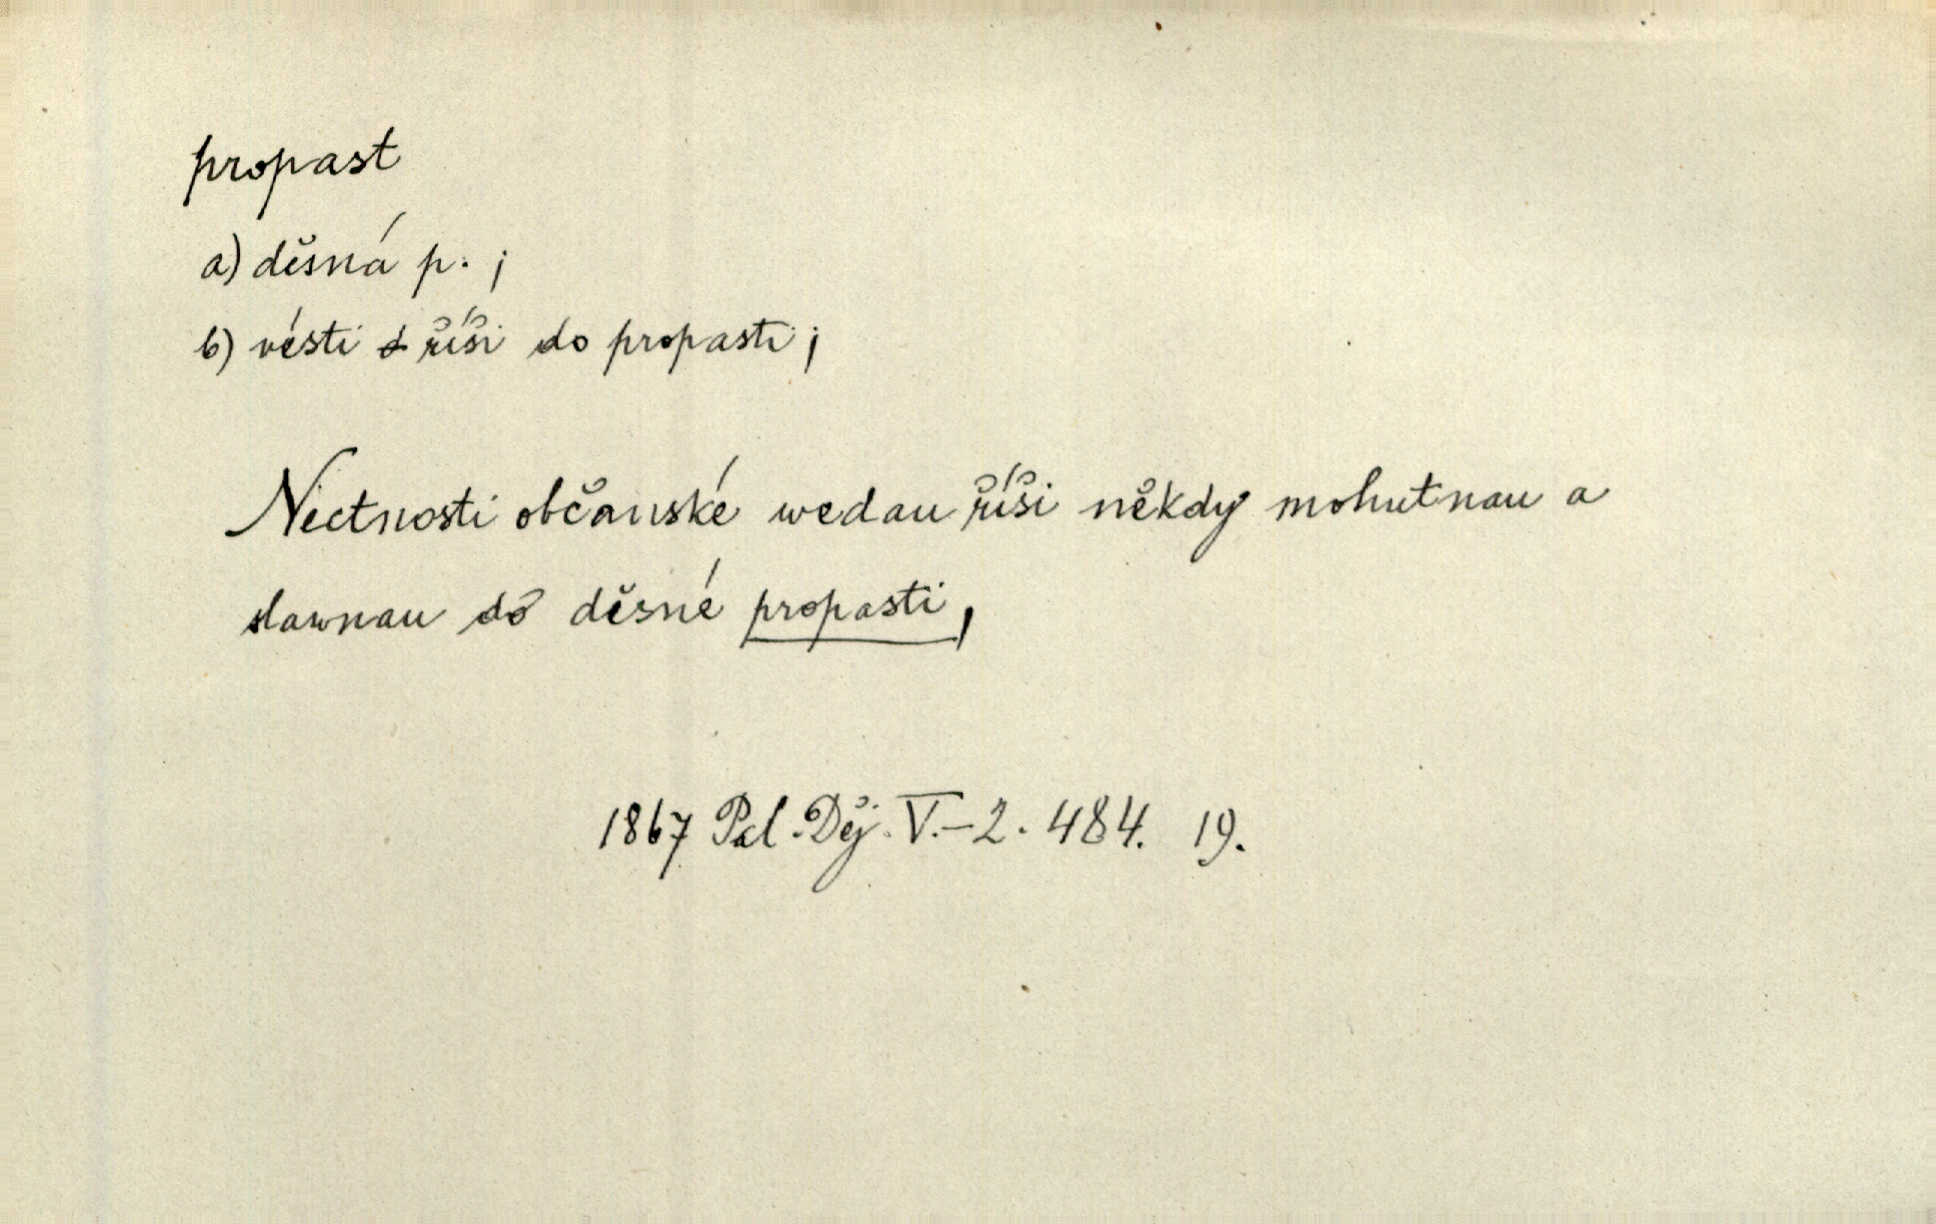 propast
a) děsná p. ;
b) vésti říši do propasti ;
Nectnosti občanské wedau říši někdy mohutnau a
slawnau do děsné propasti,
1867 Pal. Děj. V.–2. 484. 19.